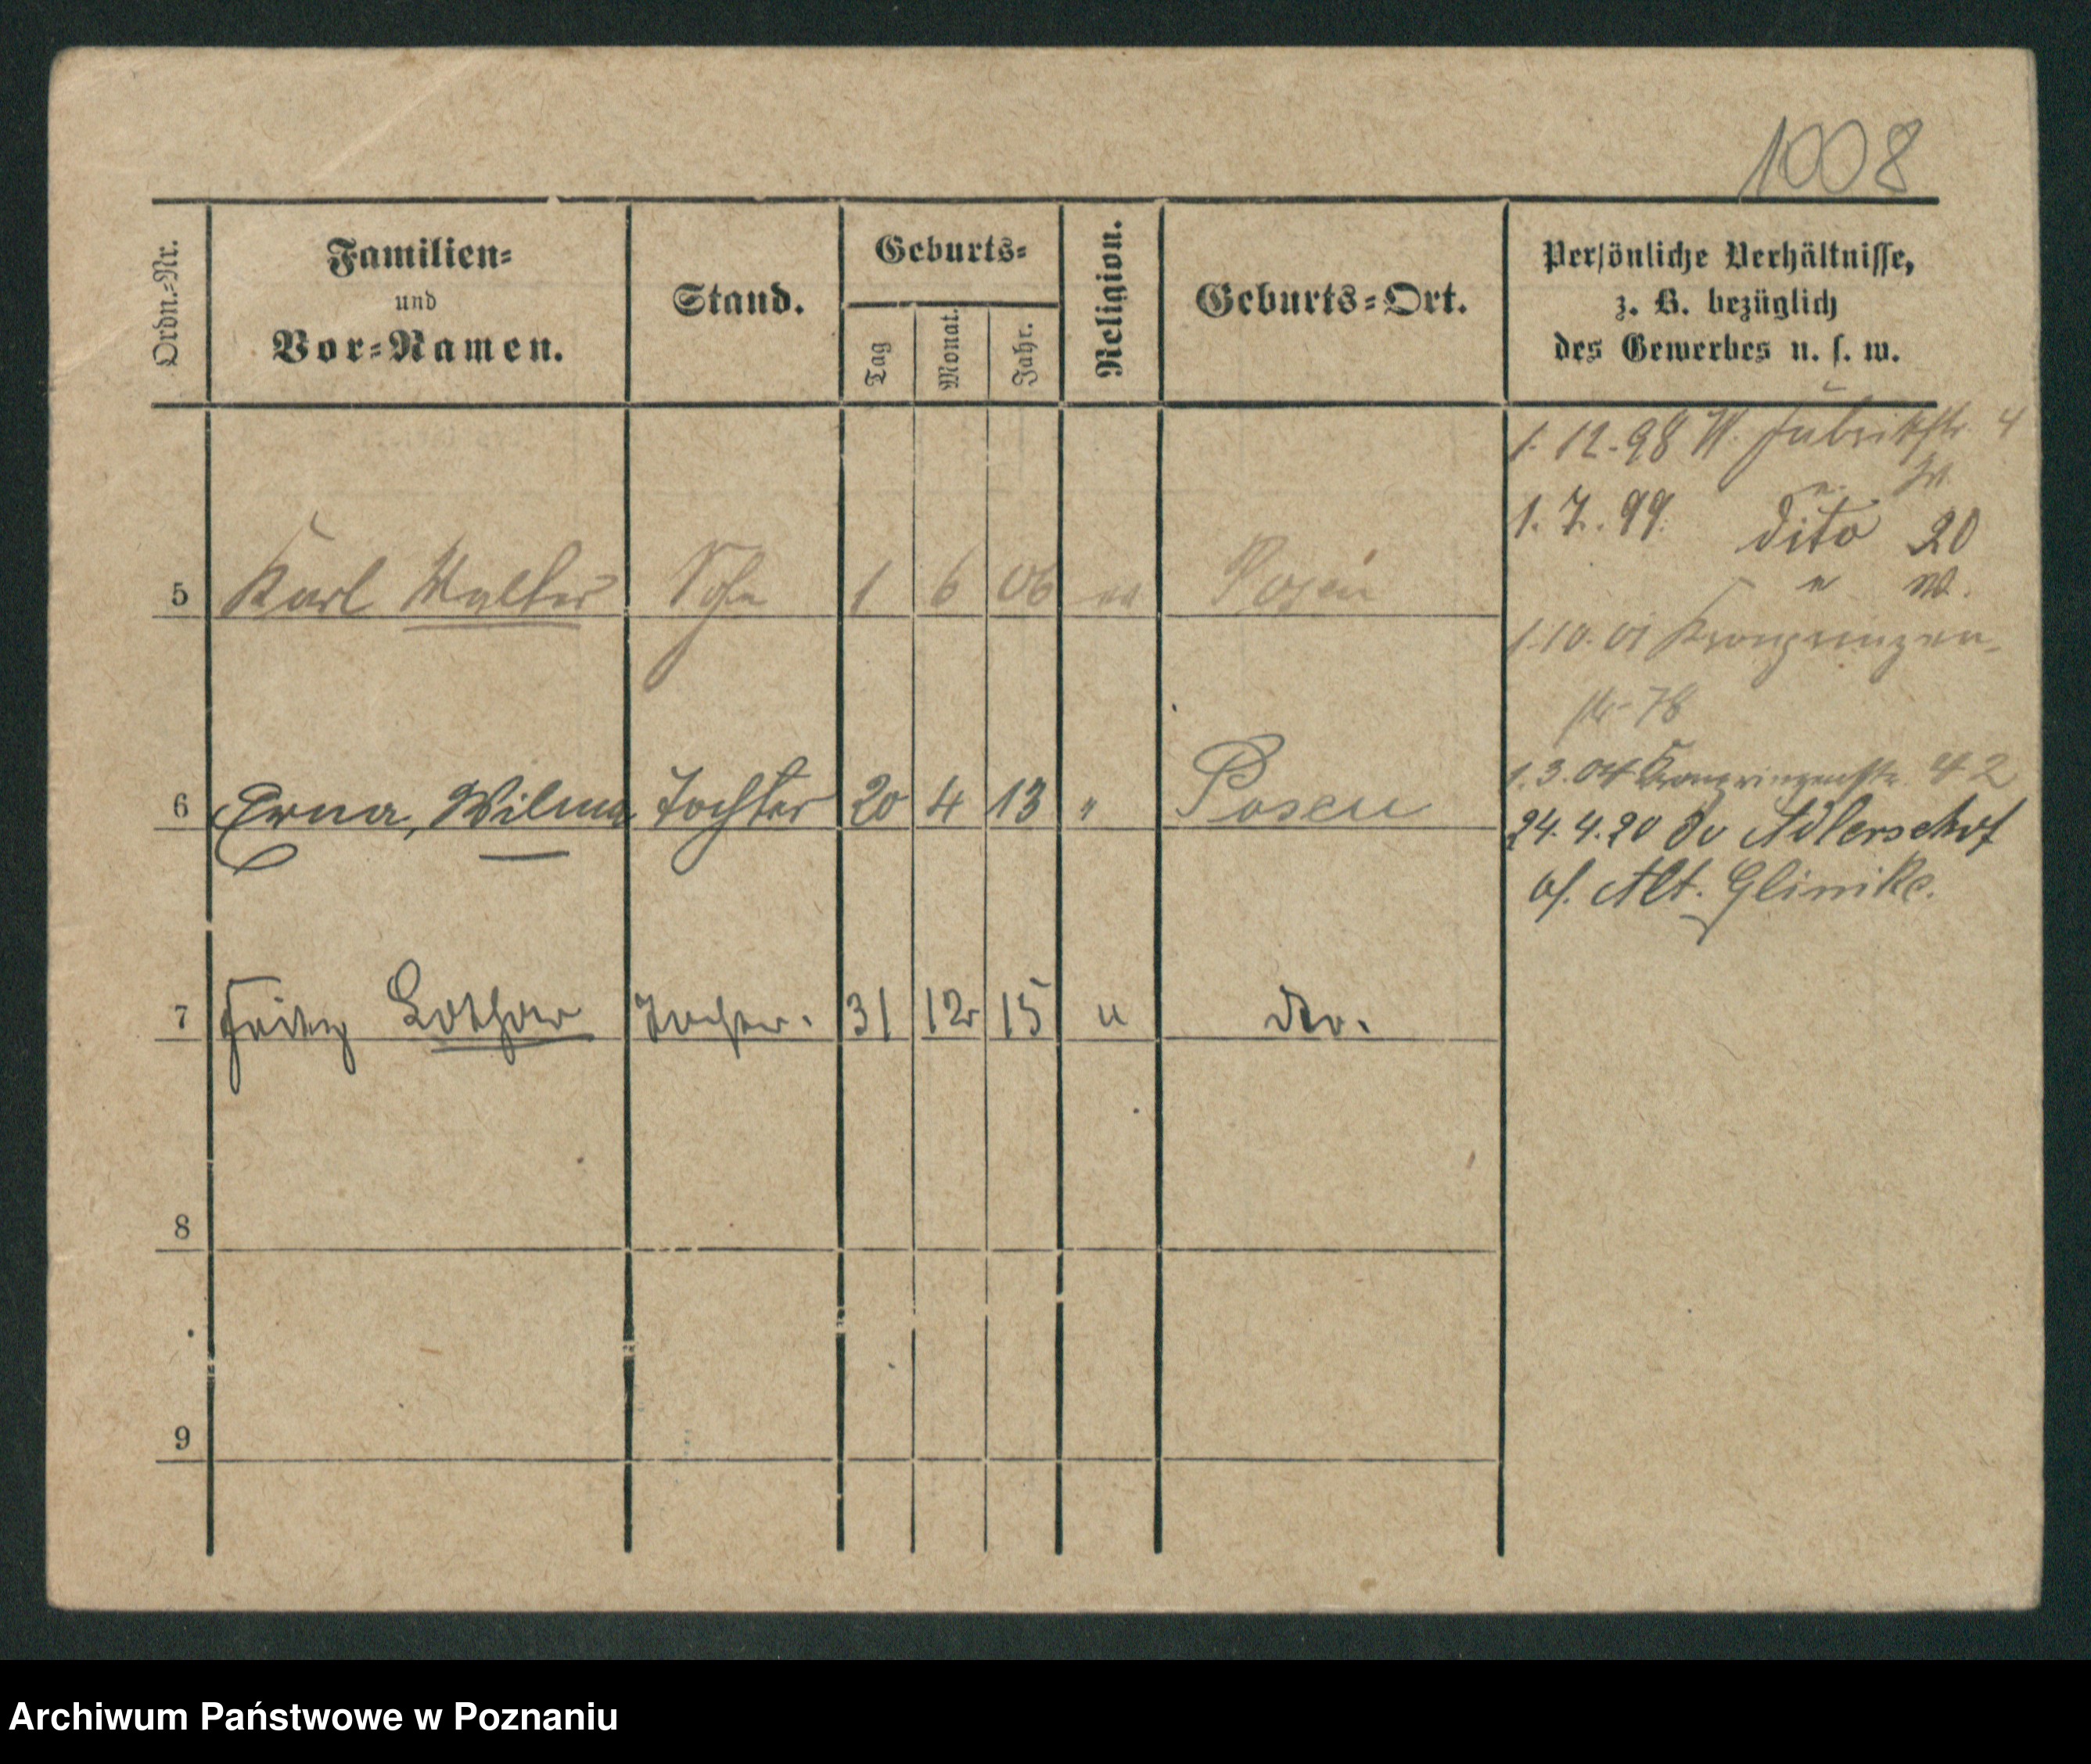 1008
Ordn.-Nr.
Familien-
und
Vor-Namen.
Stand.
Geburts-
Tag
Monat.
Jahr.
Religion.
Geburts-Ort.
Persönliche Verhältnisse,
z. B. bezüglich
des Gewerbes u. s. w.
1. 12. 98 W. Fabrikstr. 4
1. 7. 99. dito 20
5 Karl Walter Sohn 1 6 06 Posen
1.10.01 Kronprinzen-
str. 78
6 Erna, Wilma Tochter 20 4 13 " Posen
1.3.04 Kronprinzenstr. 42
24.4.20 Adlershof
Alt. Glinike.
7 Fritz Lothar Tochter. 31 12 15 " do.
8
9
Archiwum Państwowe w Poznaniu